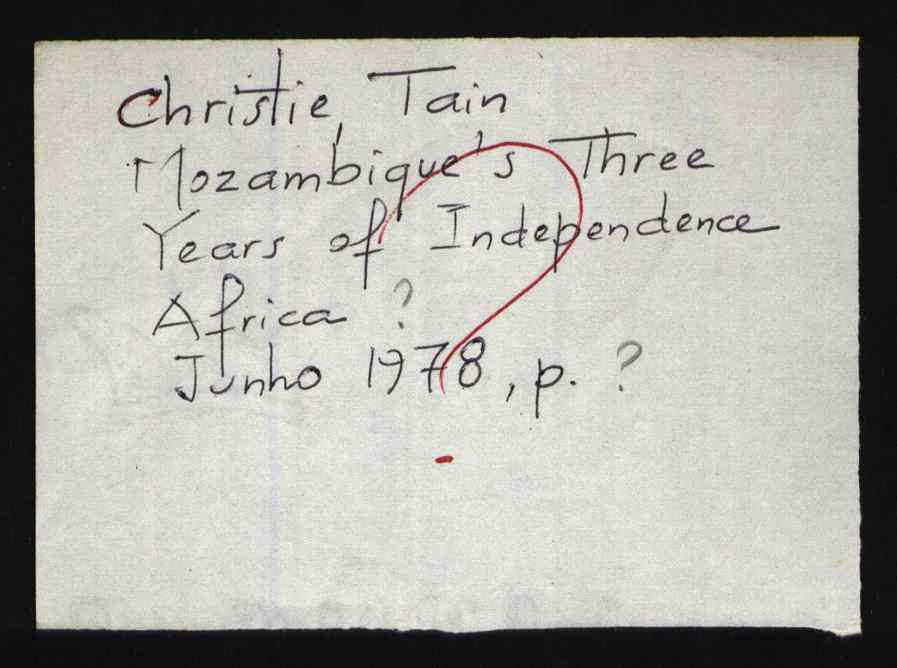 Christie, Tain
Mozambique's Three
Years of Independence
Africa ?
Junho 1978, p. ?